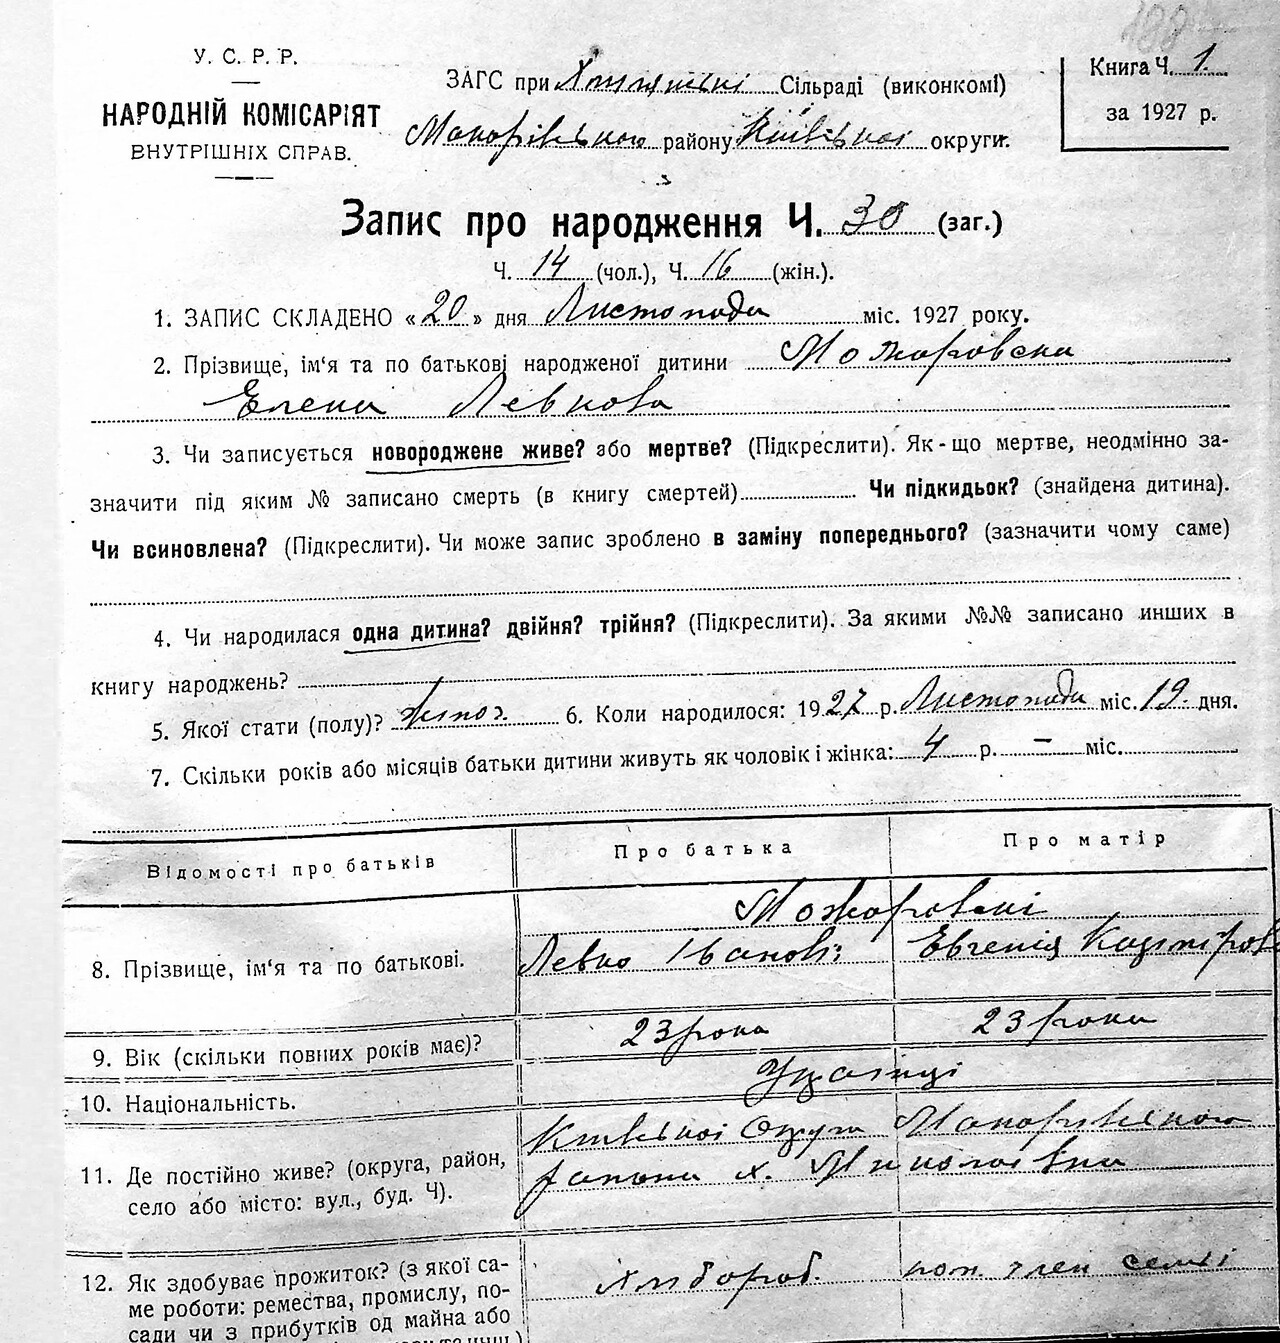 188
У. С. Р. Р.
НАРОДНІЙ КОМІСАРІЯТ
ВНУТРІШНІХ СПРАВ.
ЗАГС при Сільраді (виконкомі)
Макарівського району Київської округи.
Книга Ч. 1
за 1927 р.
Запис про народження Ч. 30 (заг.)
Ч. 14 (чол.), Ч. 16 (жін.).
1. ЗАПИС СКЛАДЕНО «20» дня Листопада міс. 1927 року.
2. Прізвище, ім'я та по батькові народженої дитиниМожаровска
Елена Левкова
3. Чи записується новороджене живе? або мертве? (Підкреслити). Як-що мертве, неодмінно за-
значити під яким № записано смерть (в книгу смертей) Чи підкидьок? (знайдена дитина).
Чи всиновлена? (Підкреслити). Чи може запис зроблено в заміну попереднього? (зазначити чому саме)
4. Чи народилася одна дитина? двійня? трійня? (Підкреслити). За якими №№ записано инших в
книгу народжень?
5. Якої стати (полу)? жіноч. 6. Коли народилося: 1927 р. Листопада міс. 19 дня.
7. Скільки років або місяців батьки дитини живуть як чоловік і жінка: 4 р. — міс.
Відомості про батьків
Про батька
Про матір
8. Прізвище, ім'я та по батькові.
Можаровскі
Левко Іванов: Евгенія Казіміров
9. Вік (скільки повних років має)?
23 рока
23 рока
10. Національність.
Українці
11. Де постійно живе? (округа, район,
село або місто: вул., буд. Ч).
Київської округи Макарівського
района х. Миколаівка
12. Як здобуває прожиток? (з якої са-
ме роботи: ремества, промислу, по-
сади чи з прибутків од майна або
Хлібороб.
пом. член семьі